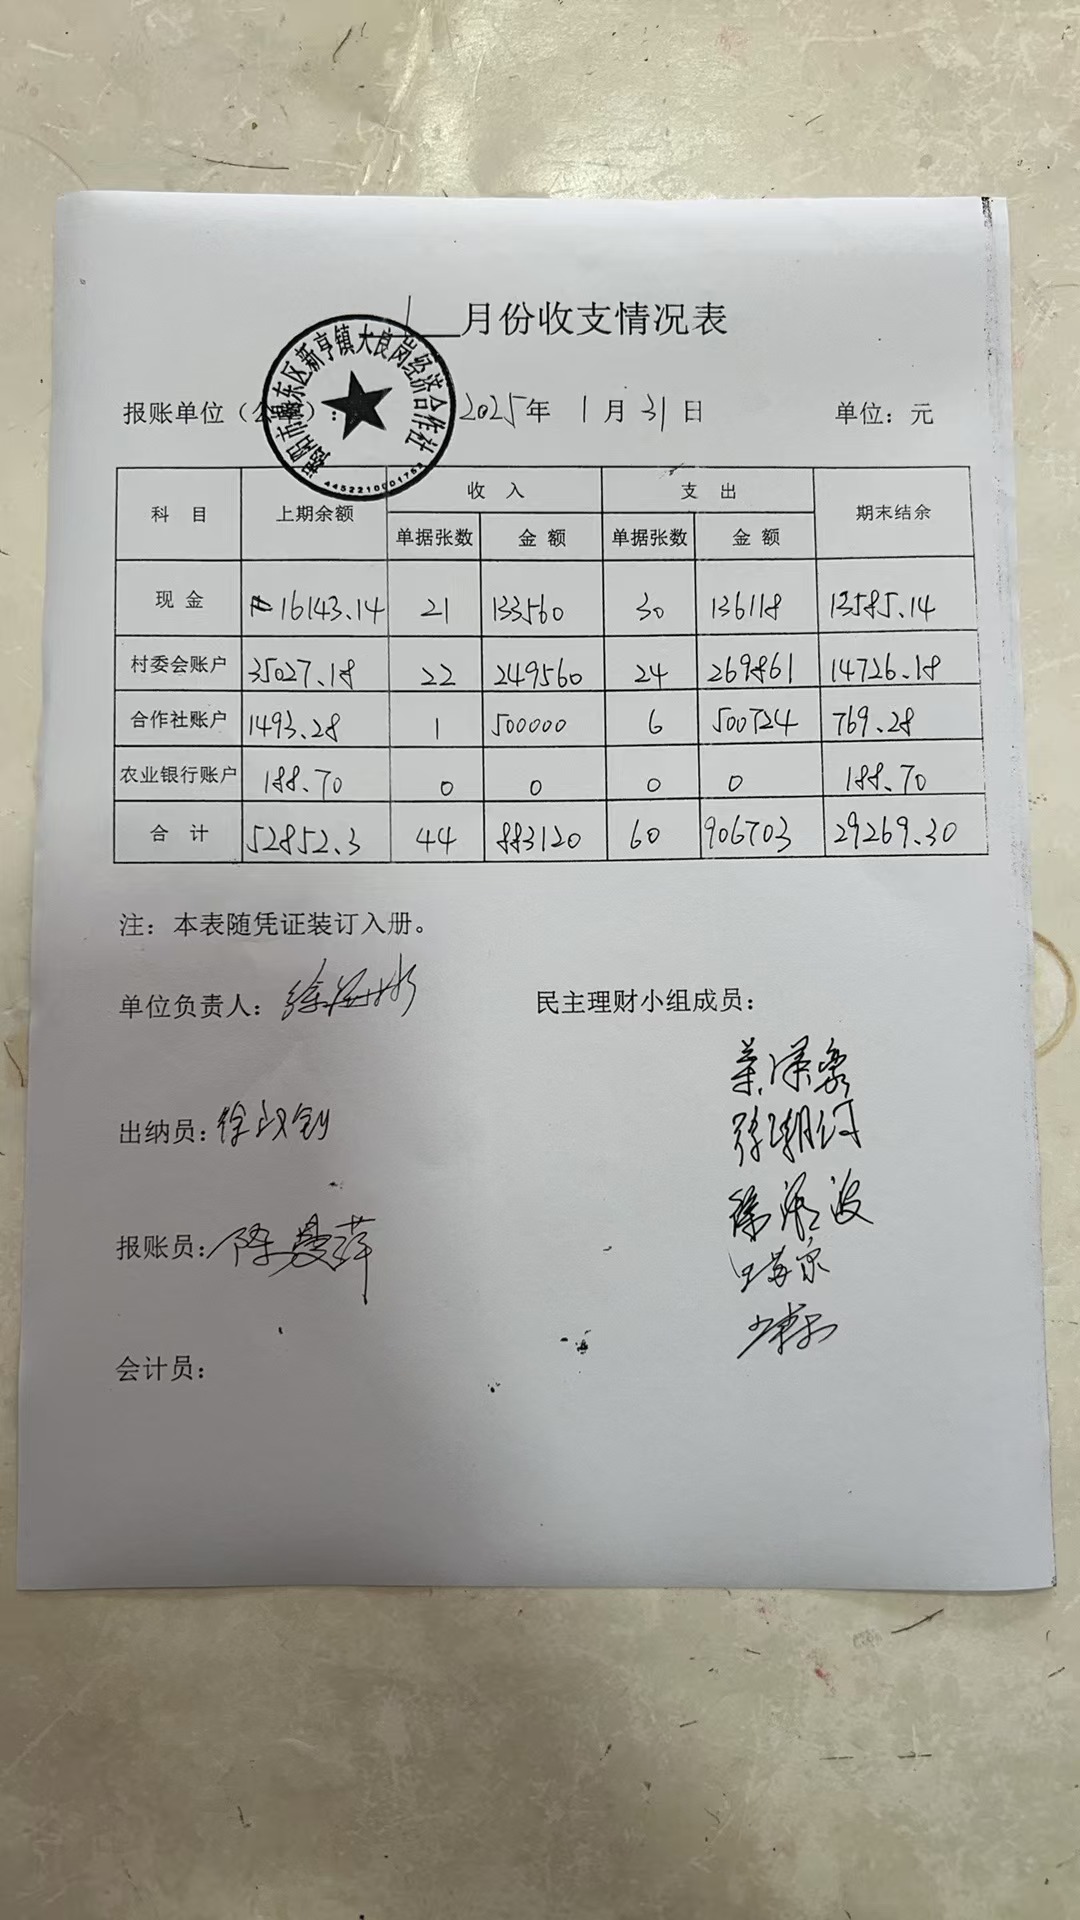 1月份收支情况表
揭阳市揭东区新亨镇大良岗经济合作社
4452210001752
报账单位（公章）： 2025年 1月31日 单位：元
科 目 上期余额 收 入 支 出 期末结余
单据张数 金 额 单据张数 金 额
现 金 16143.14 21 133560 30 136118 13585.14
村委会账户 35027.18 22 249560 24 269861 14726.18
合作社账户 1493.28 1 500000 6 500724 769.28
农业银行账户 188.70 0 0 0 0 188.70
合 计 52852.3 44 883120 60 906703 29269.30
注：本表随凭证装订入册。
单位负责人：徐 民主理财小组成员：
出纳员：徐
报账员：陈曼萍
会计员：